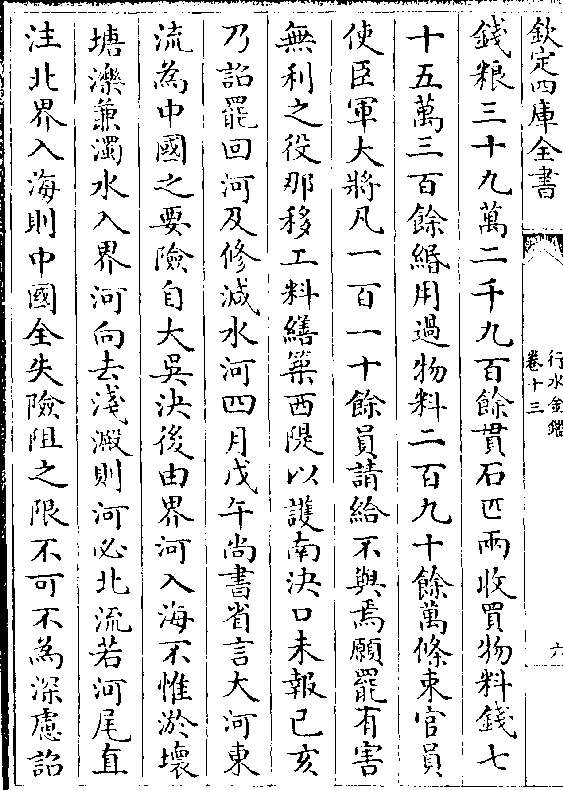 欽定四庫全書
行水金鑑
卷十三
六
錢粮三十九萬二千九百餘貫石匹兩收買物料錢七
十五萬三百餘緡用過物料二百九十餘萬條束官員
使臣軍大將凡一百一十餘員請給不與焉願罷有害
無利之役那移工料繕築西隄以護南決口未報已亥
乃詔罷回河及修減水河四月戊午尚書省言大河東
流為中國之要險自大吳決後由界河入海不惟淤壞
塘濼兼濁水入界河向去淺澱則河必北流若河尾直
注北界入海則中國全失險阻之限不可不為深慮詔